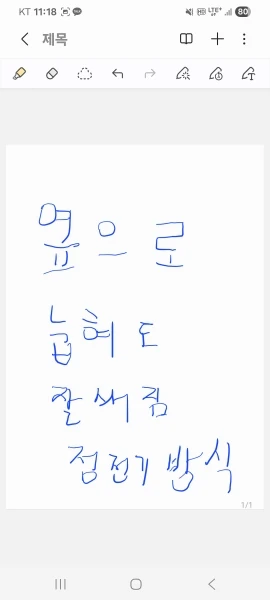 KT 11:18
LTE+ 80
제목
옆으로
눕혀도
잘 써짐
정전기 방식
1/1